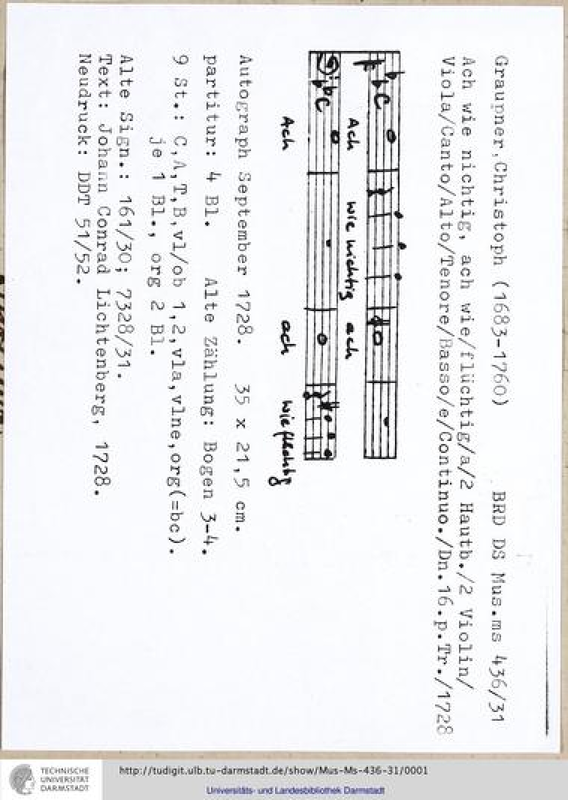 Graupner, Christoph (1683-1760) BRD DS Mus.ms 436/31
Ach wie nichtig, ach wie/flüchtig/a/2 Hautb./2 Violin/
Viola/Canto/Alto/Tenore/Basso/e/Continuo./Dn.16.p.Tr./1728
Ach wie nichtig ach
Ach ach wie flüchtig
Autograph September 1728. 35 x 21,5 cm.
partitur: 4 Bl. Alte Zählung: Bogen 3-4.
9 St.: C,A,T,B,vl/ob 1,2,vla,vlne,org(=bc).
je 1 Bl., org 2 Bl.
Alte Sign.: 161/30; 7328/31.
Text: Johann Conrad Lichtenberg, 1728.
Neudruck: DDT 51/52.
TECHNISCHE
UNIVERSITÄT
DARMSTADT
http://tudigit.ulb.tu-darmstadt.de/show/Mus-Ms-436-31/0001
Universitäts- und Landesbibliothek Darmstadt